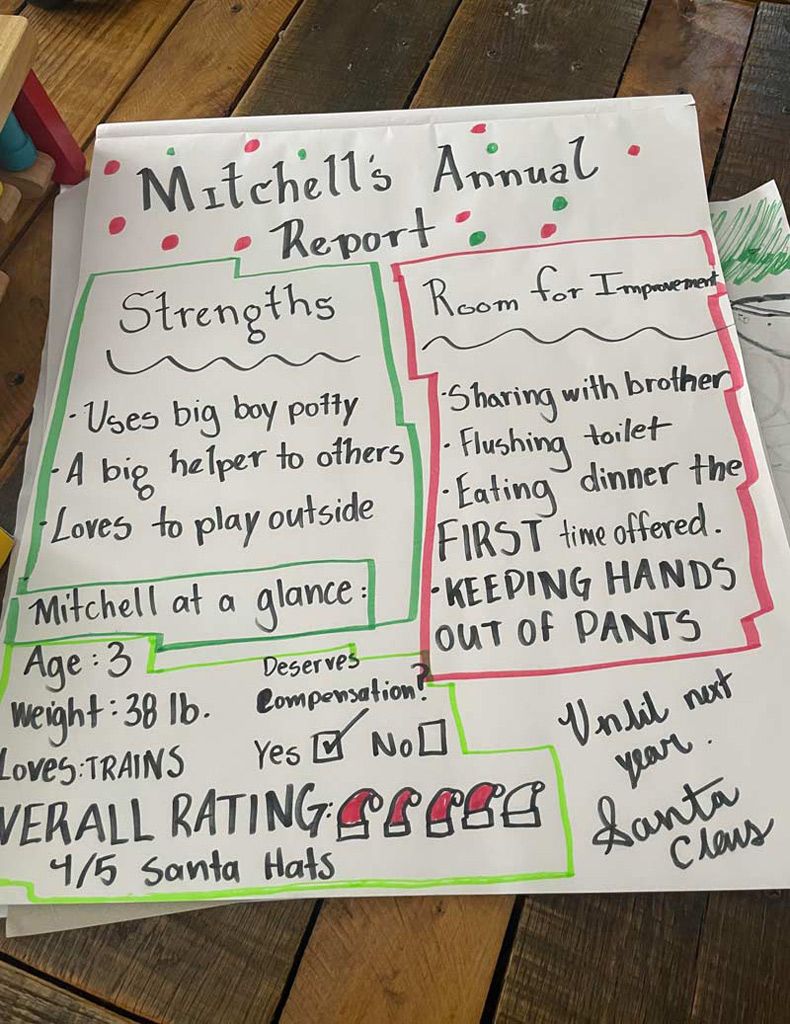 Mitchell's Annual
Report
Strengths
· Uses big boy potty
· A big helper to others
· Loves to play outside
Room for Improvement
· Sharing with brother
· Flushing toilet
· Eating dinner the
FIRST time offered.
· KEEPING HANDS
OUT OF PANTS
Mitchell at a glance:
Age: 3
Weight: 38 lb.
Loves: TRAINS
Deserves
Compensation?
Yes ☑ No ☐
VERALL RATING:
4/5 Santa Hats
Until next
year.
Santa
Claus